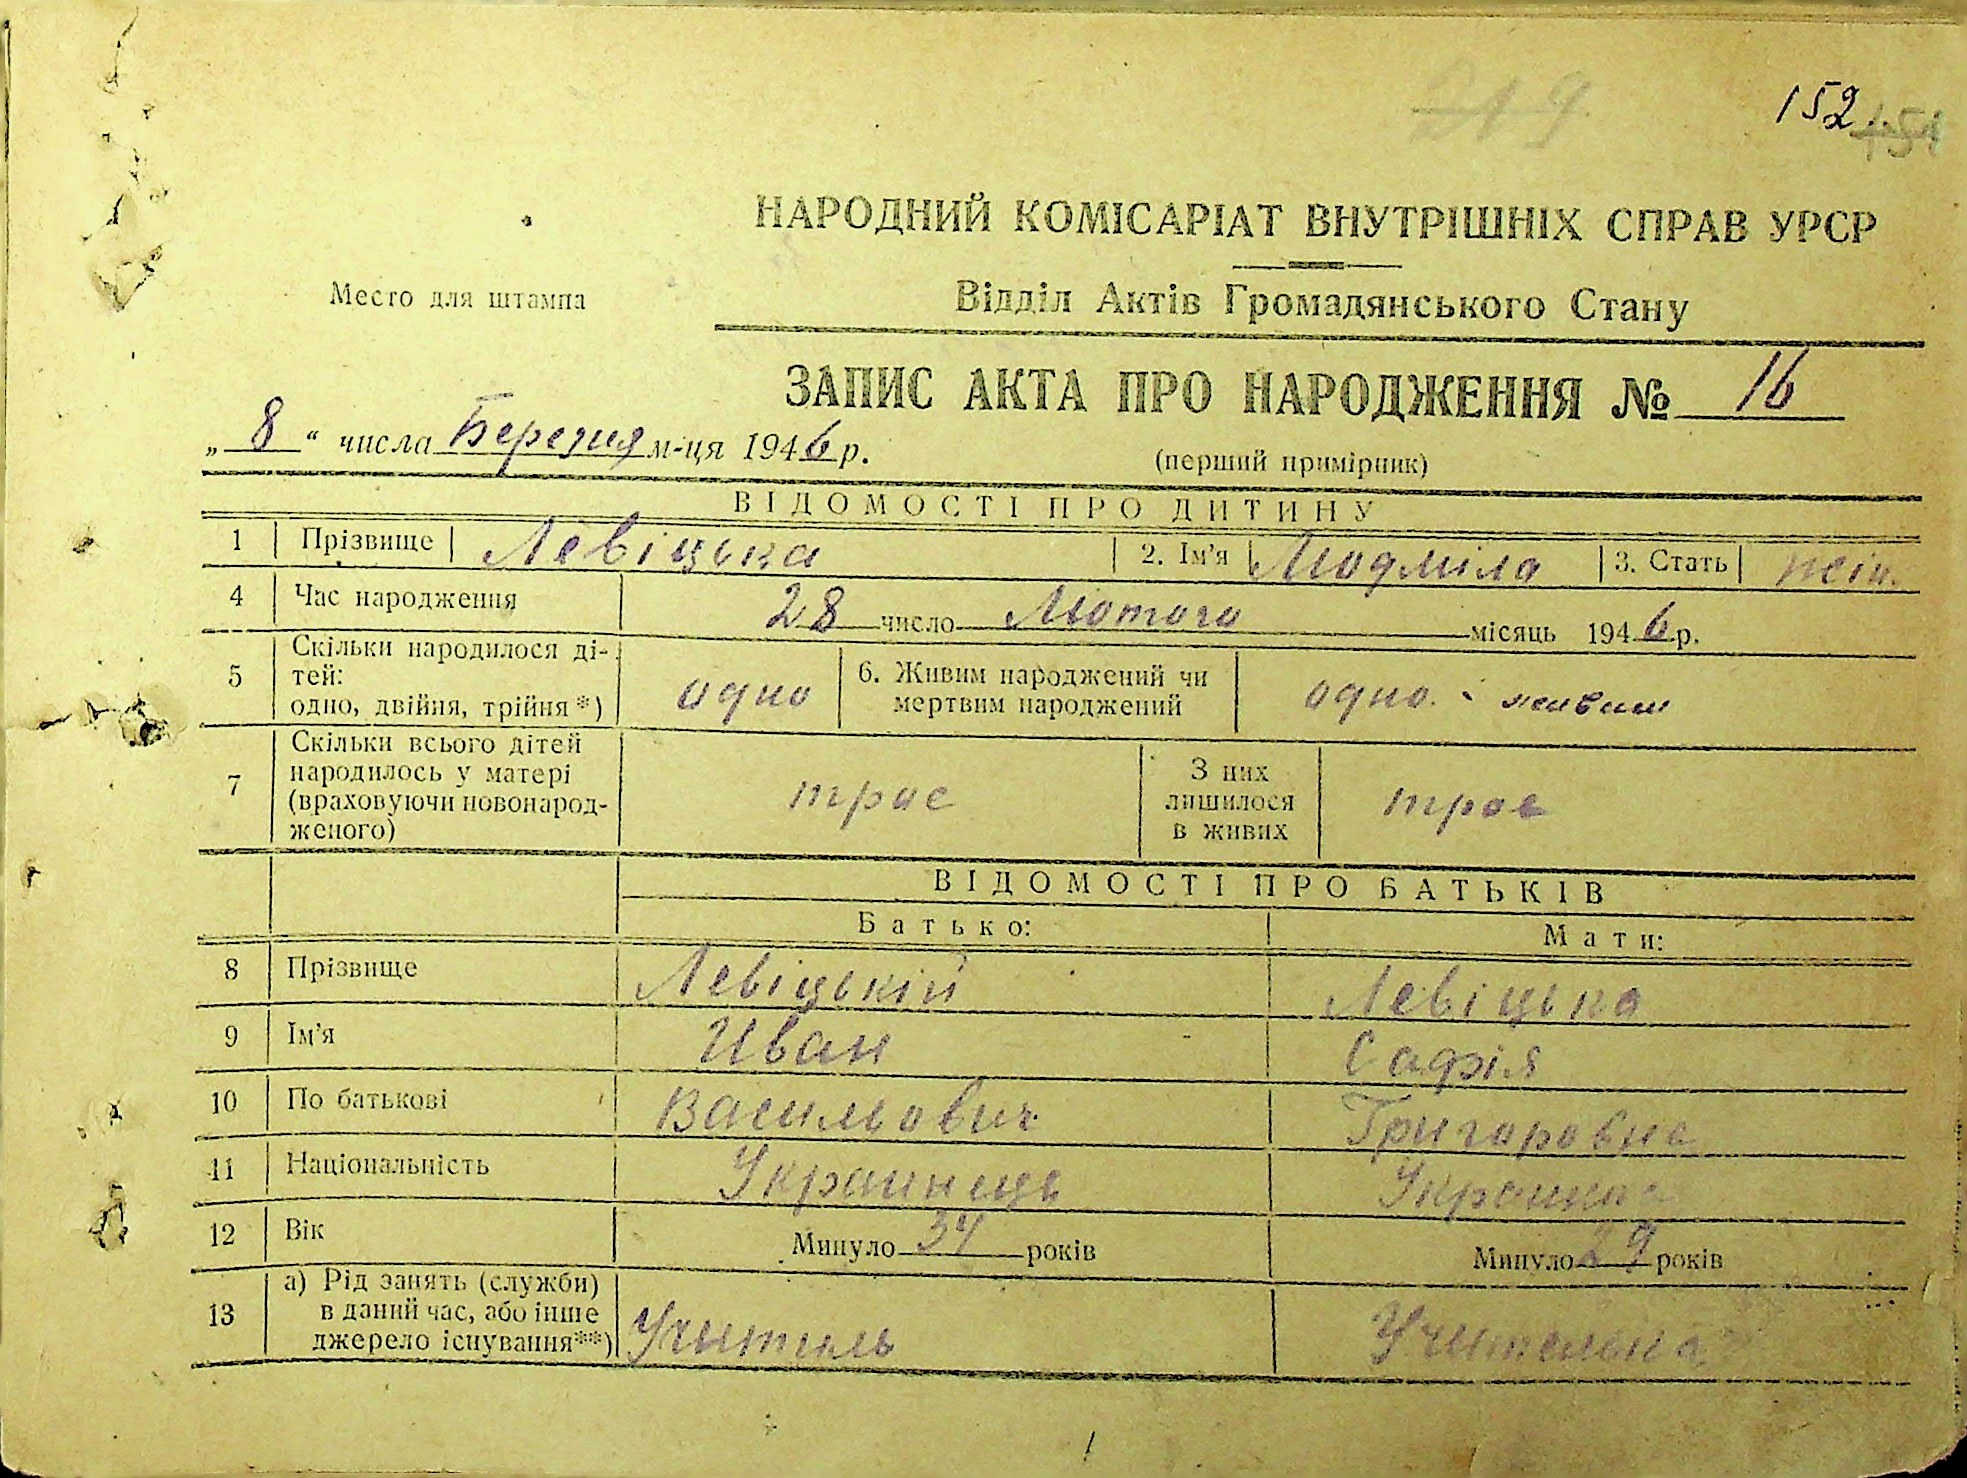 219.
152 151
НАРОДНИЙ КОМІСАРІАТ ВНУТРІШНІХ СПРАВ УРСР
Место для штампа
Відділ Актів Громадянського Стану
ЗАПИС АКТА ПРО НАРОДЖЕННЯ № 16
„ 8 “ числа Березня м-ця 1946 р.
(перший примірник)
ВІДОМОСТІ ПРО ДИТИНУ
1 Прізвище Левіцька 2. Ім'я Людміла 3. Стать жін.
4 Час народження 28 число Лютого місяць 1946 р.
5 Скільки народилося ді-
тей:
одно, двійня, трійня*) одно 6. Живим народжений чи
мертвим народжений одно. - живим
7 Скільки всього дітей
народилось у матері
(враховуючи новонарод-
женого) трое З них
лишилося
в живих трое
ВІДОМОСТІ ПРО БАТЬКІВ
Батько: Мати:
8 Прізвище Левіцькій Левіцька
9 Ім'я Иван Сафія
10 По батькові Васильович Григоровна
11 Національність Украинець Украинка
12 Вік Минуло 34 років Минуло 29 років
13 а) Рід занять (служби)
в даний час, або інше
джерело існування**) Учитиль Учительна